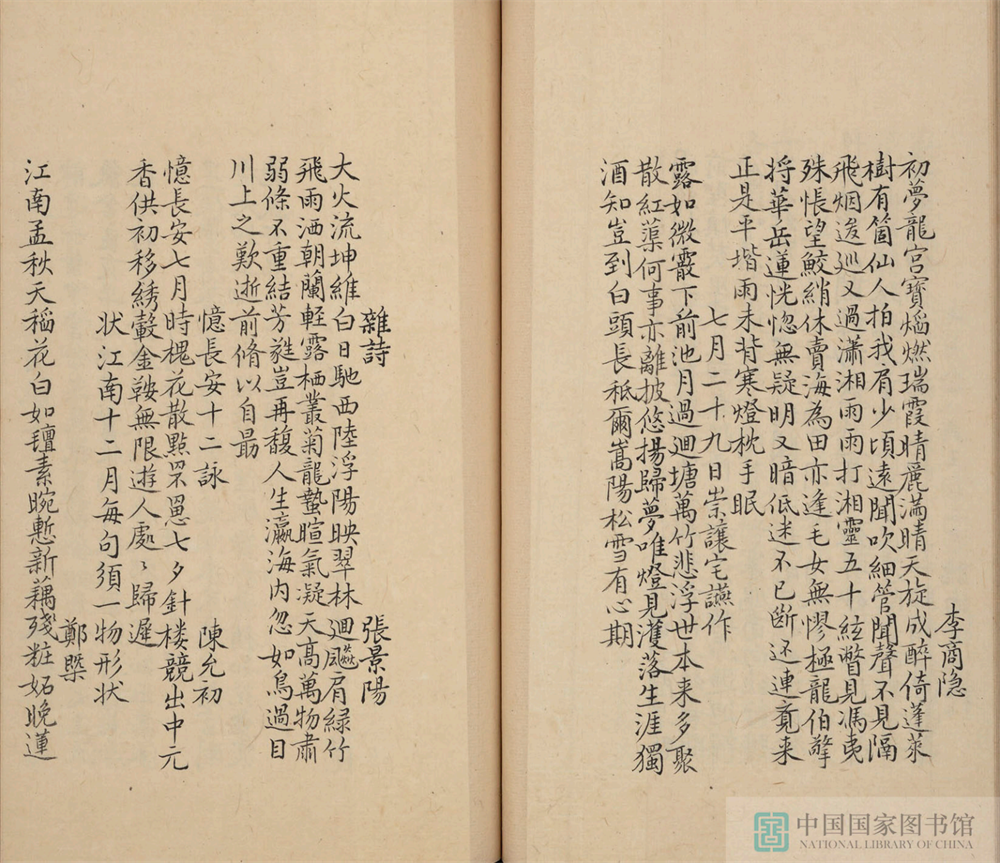 李商隐
初夢龍宮寶焰燃瑞霞晴麗滿晴天旋成醉倚蓬萊
樹有箇仙人拍我肩少頃遠聞吹細管聞聲不見隔
飛烟逡巡又過瀟湘雨雨打湘靈五十絃瞥見馮夷
殊悵望鮫綃休賣海為田亦逢毛女無憀極龍伯擎
将華岳蓮恍惚無疑明又暗低迷不已断还連竟来
正是平堦雨未背寒燈枕手眠
七月二十九日崇讓宅讌作
露如微霰下前池月過迴塘萬竹悲浮世本来多聚
散紅蕖何事亦離披悠揚歸夢唯燈見濩落生涯獨
酒知豈到白頭長秪爾嵩陽松雪有心期
雜詩 張景陽
大火流坤維白日馳西陸浮陽映翠林迴飈肩緑竹
飛雨洒朝蘭輕露栖叢菊龍蟄暄氣凝天高萬物肅
弱條不重結芳蕤豈再馥人生瀛海内忽如鳥過目
川上之歎逝前脩以自最
憶長安十二詠 陳允初
憶長安七月時槐花散點罘罳七夕針楼競出中元
香供初移綉轂金鞍無限遊人處〻歸遲
状江南十二月每句須一物形状
鄭槩
江南孟秋天稲花白如氊素腕慙新藕殘粧妬晚蓮
中国国家图书馆
NATIONAL LIBRARY OF CHINA